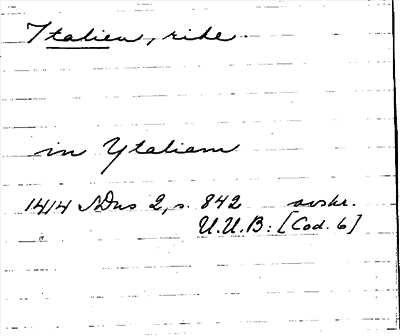 Italien, rike
in Ytaliam
1414 SDns 2, s. 842 avskr.
U.U.B: [Cod. 6]